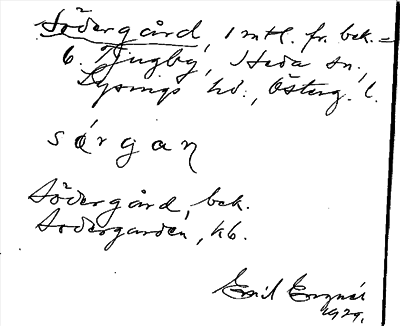 Södergård, 1 mtl. fr. bek. =
6. Tjugby, Heda sn,
Lysings hd., Österg. l.
sörgaɳ
Södergård, bek.
Sodergarden, kb.
Emil
1929.